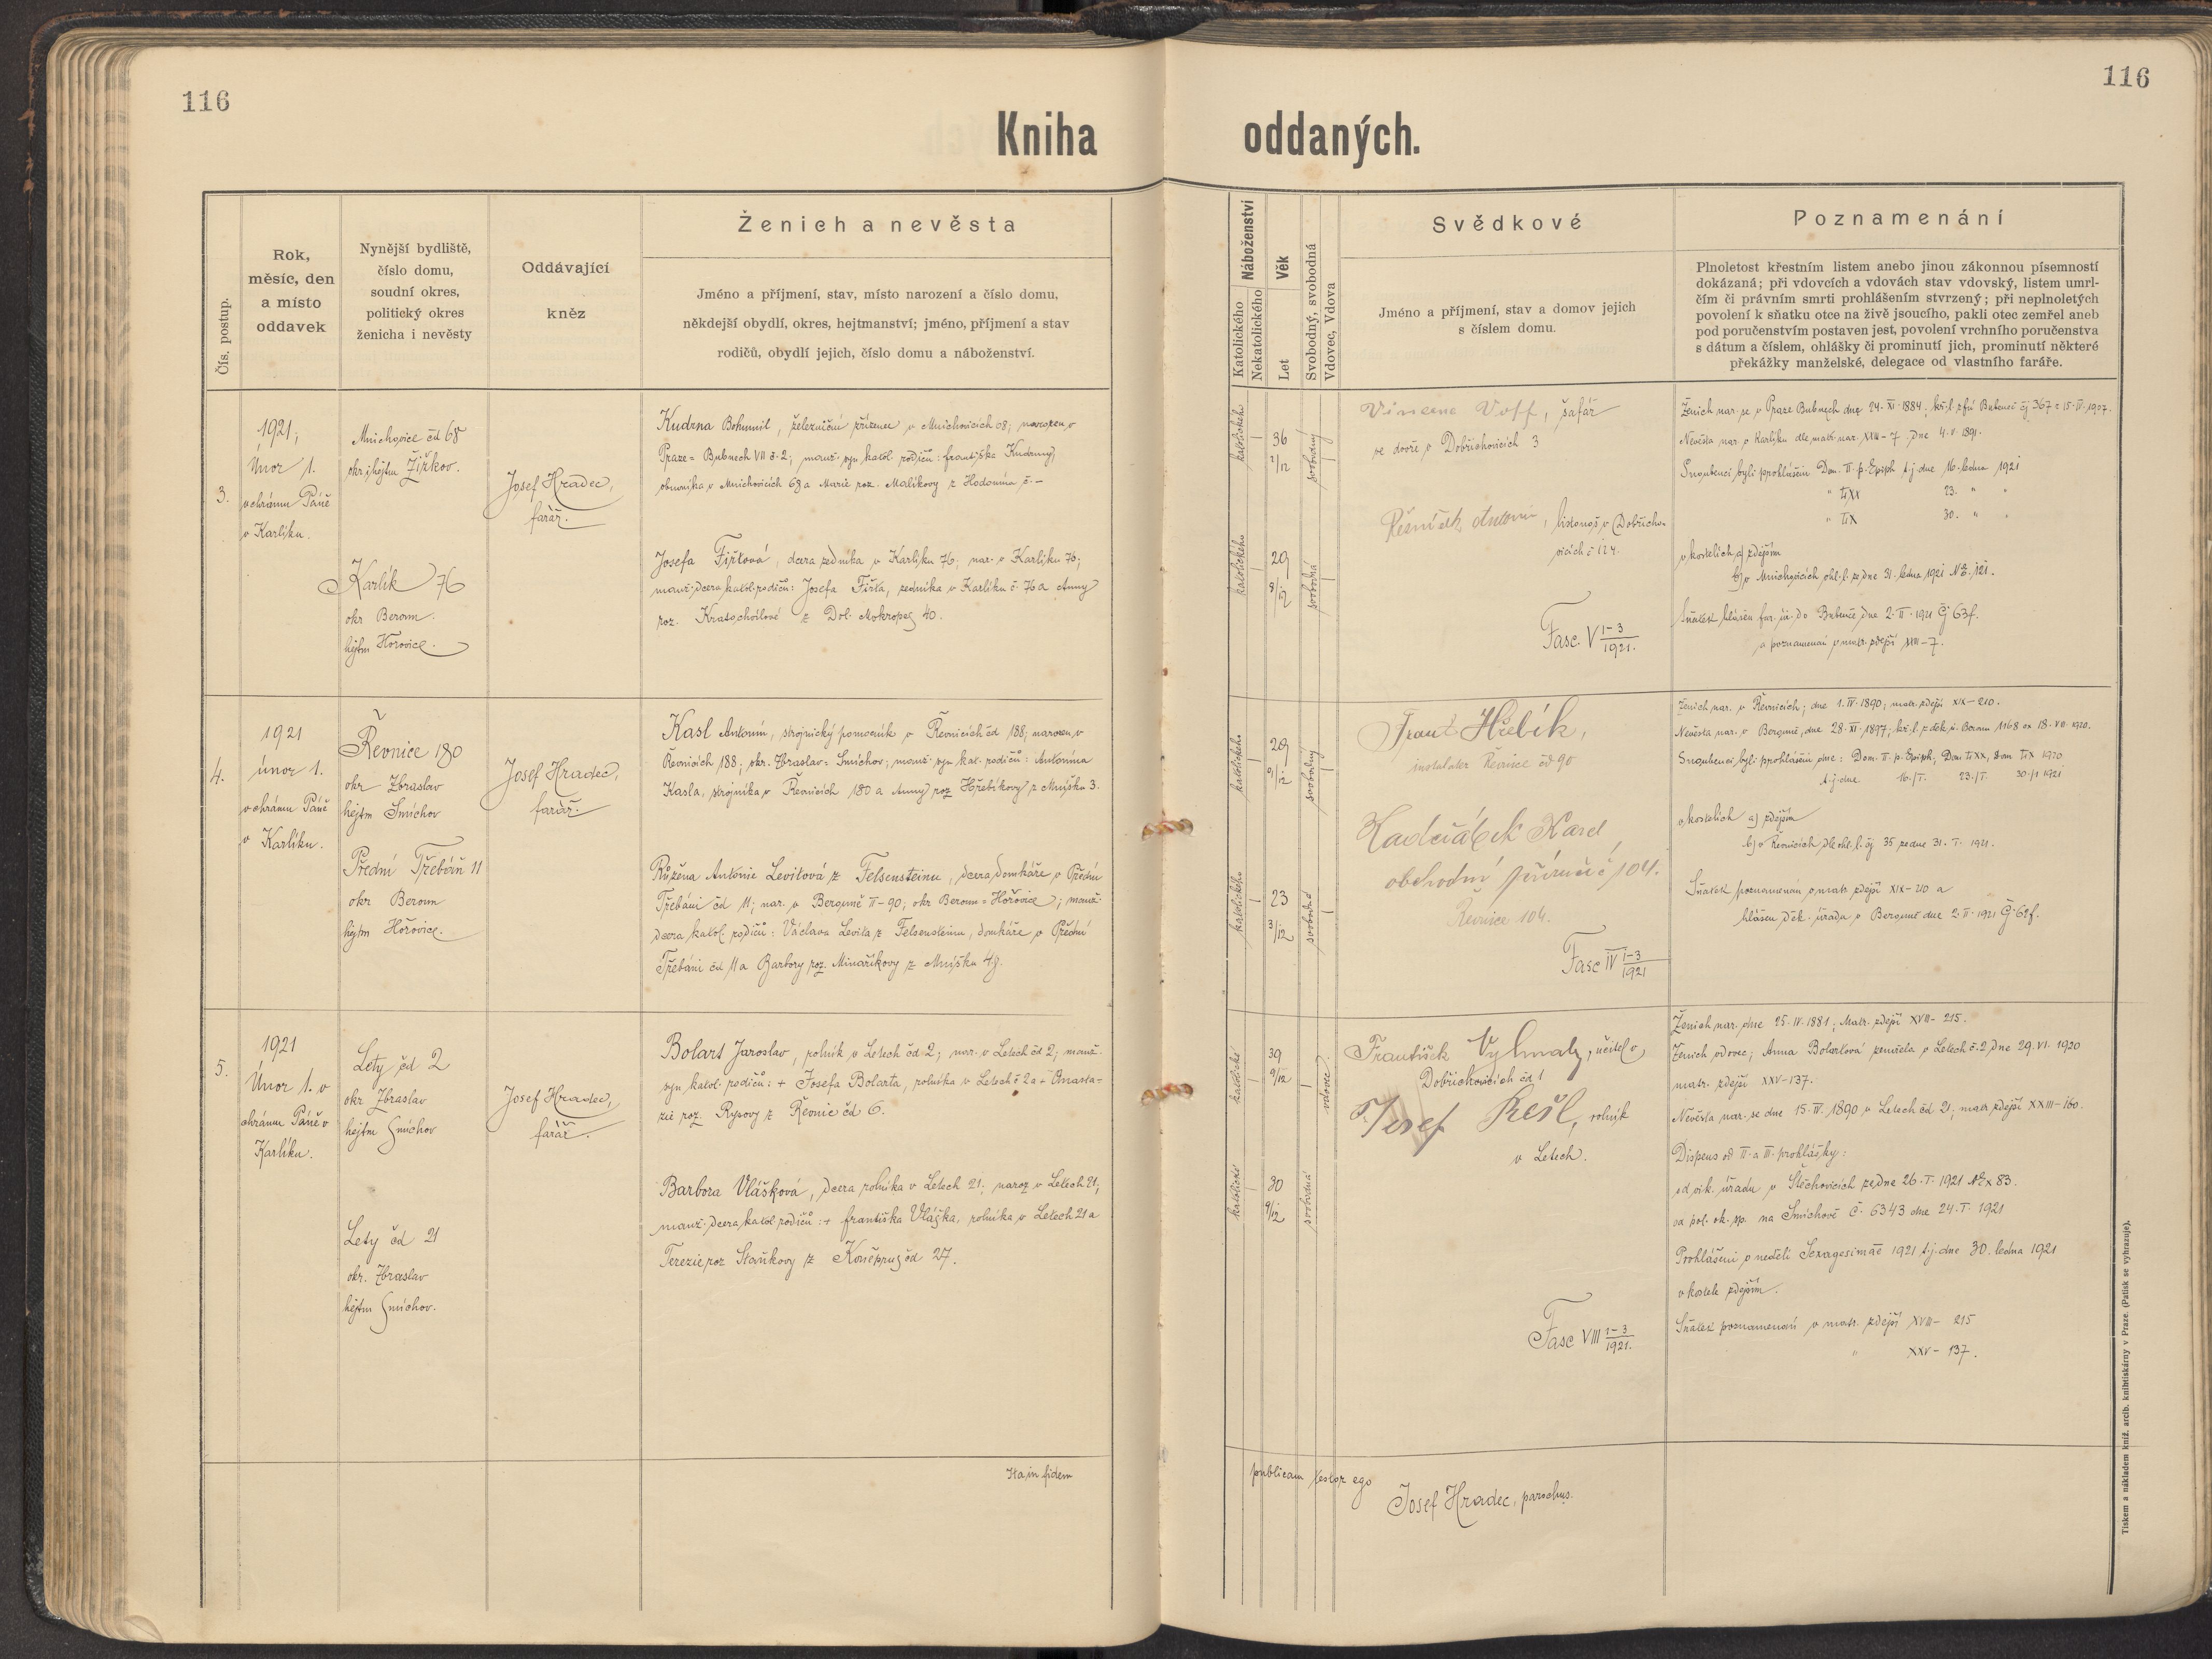 116
116
Kniha oddaných.
Čís. postup.
Rok,
měsíc, den
a místo
oddavek
Nynější bydliště,
číslo domu,
soudní okres,
politický okres
ženicha i nevěsty
Oddávající
kněz
Ženich a nevěsta
Jméno a příjmení, stav, místo narození a číslo domu,
někdejší obydlí, okres, hejtmanství; jméno, příjmení a stav
rodičů, obydlí jejich, číslo domu a náboženství.
Náboženství
Katolického
Nekatolického
Věk
Let
Svobodný, svobodná
Vdovec, Vdova
Svědkové
Jméno a příjmení, stav a domov jejich
s číslem domu.
Poznamenání
Plnoletost křestním listem anebo jinou zákonnou písemností
dokázaná; při vdovcích a vdovách stav vdovský, listem umrl-
čím či právním smrti prohlášením stvrzený; při neplnoletých
povolení k sňatku otce na živě jsoucího, pakli otec zemřel aneb
pod poručenstvím postaven jest, povolení vrchního poručenstva
s dátum a číslem, ohlášky či prominutí jich, prominutí některé
překážky manželské, delegace od vlastního faráře.
3.
1921,
Únor 1.
v chrámu Páně
v Karlíku.
Mnichovice čd 68
okr. i hejtm Žižkov.
Karlík 76
okr Beroun.
hejtm Hořovice.
Josef Hradec,
farář.
Kudrna Bohumil, železniční zřízenec v Mnichovicích 68; narozen v
Praze = Bubnech VII č. 2; manž. syn katol. rodičů: Františka Kudrny,
obuvníka v Mnichovicích 68 a Marie roz. Malíkovy z Hodonína č. –
Josefa Fištová, dcera zedníka v Karlíku 76; nar. v Karlíku 76;
manž. dcera katol. rodičů: Josefa Fišta, zedníka v Karlíku č. 76 a Anny
roz. Kratochvílové z Dol. Mokropes 40.
katolického
36
2/12
svobodný
katolického
29
8/12
svobodná
Voff, šafář
ve dvoře v Dobřichovicích 3
Antonín, listonoš v Dobřicho-
vicích č 124.
Fasc. V 1–3/1921.
Ženich nar. se v Praze Bubnech dne 24. XI. 1884; kř. l. z fú Bubenci čj 367 z 15. IV. 1907.
Nevěsta nar. v Karlíku dle matr. nar. XXIII – 7, dne 4. V. 1891.
Snoubenci byli prohlášeni Dom. II. p. Epiph t. j. dne 16. ledna 1921
" LXX 23. " "
" LX 30. " "
v kostelích a) zdejším
b) v Mnichovicích ohl. l. ze dne 31. ledna 1921 Nº. 121.
Sňatek hlášen far. úř. do Bubenče dne 2. II. 1921 Čj 63f.
a poznamenán v matr. zdejší XXIII – 7.
4.
1921
únor 1.
v chrámu Páně
v Karlíku.
Řevnice 180
okr Zbraslav
hejtm Smíchov
Přední Třebáň 11
okr Beroun
hejtm Hořovice.
Josef Hradec,
farář.
Kasl Antonín, strojnický pomocník v Řevnicích čd 188; narozen v
Řevnicích 188; okr. Zbraslav = Smíchov; manž. syn kat. rodičů: Antonína
Kasla, strojníka v Řevnicích 180 a Anny roz Hřebíkovy z Mníšku 3.
Růžena Antonie Levitová z Felsensteinu, dcera domkáře v Přední
Třebáni čd 11; nar. v Berouně II – 90; okr Beroun = Hořovice; manž.
dcera katol. rodičů: Václava Levita z Felsensteinu, domkáře v Přední
Třebáni čd 11 a Barbory roz. Minaříkovy z Mníšku 48.
katolického
29
9/12
svobodný
katolického
23
3/12
svobodná
Frant Hřebík,
instalater Řevnice čd 90
Kadeřábek Karel
obchodní příručí č 104.
Řevnice 104.
Fasc IV 1–3/1921
Ženich nar. v Řevnicích; dne 1. IV. 1890; matr. zdejší XIX – 210.
Nevěsta nar. v Berouně, dne 28. XI. 1897; kř. l. z děk. ú. Beroun 1168 ex 18. VII. 1920.
Snoubenci byli prohlášeni dne: Dom. II. p. Epiph, Dom LXX, Dom LX 1920
t. j. dne 16./I. 23./I. 30./1 1921
v kostelích a) zdejším
b) v Řevnicích dle ohl. l. čj 35 ze dne 31. I. 1921.
Sňatek poznamenán v matr. zdejší XIX – 210 a
hlášen Děk. úřadu v Berouně dne 2. II. 1921 Čj 62f.
5.
1921
Únor 1. v
chrámu Páně v
Karlíku.
Lety čd 2
okr Zbraslav
hejtm Smíchov
Lety čd 21
okr. Zbraslav
hejtm Smíchov.
Josef Hradec,
farář.
Bolart Jaroslav, rolník v Letech čd 2; nar. v Letech čd 2; manž.
syn katol. rodičů: + Josefa Bolarta, rolníka v Letech č 2 a + Anasta-
zie roz. Rysovy z Řevnic čd 6.
Barbora Vlášková, dcera rolníka v Letech 21; naroz v Letech 21;
manž. dcera katol rodičů: + Františka Vláška, rolníka v Letech 21 a
Terezie roz Staňkovy z Koněprus čd 27.
katolické
39
9/12
vdovec
katolické
30
9/12
svobodná
František Vyhnal, učitel v
Dobřichovicích čd 1
Josef Kešl, rolník
v Letech.
Fasc VIII 1–3/1921.
Ženich nar. dne 25. IV. 1881; Matr. zdejší XVII – 215.
Ženich vdovec; Anna Bolartová zemřela v Letech č. 2 dne 29. VI. 1920
matr. zdejší XXV – 137.
Nevěsta nar. se dne 15. IV. 1890 v Letech čd. 21; matr zdejší XXIII – 160.
Dispens od II. a III. prohlášky:
od vik. úřadu v Štěchovicích ze dne 26. I. 1921 Nº x 83.
od pol. ok. sp. na Smíchově č. 6343 dne 24. I. 1921
Prohlášeni v neděli Sexagesimae 1921 t. j. dne 30. ledna 1921
v kostele zdejším.
Sňatek poznamenán v matr. zdejší XVII – 215
" XXV – 137.
Ita in fidem publicam testor ego
Josef Hradec, parochus.
Tiskem a nákladem kníž. arcib. knihtiskárny v Praze. (Patisk se vyhrazuje).